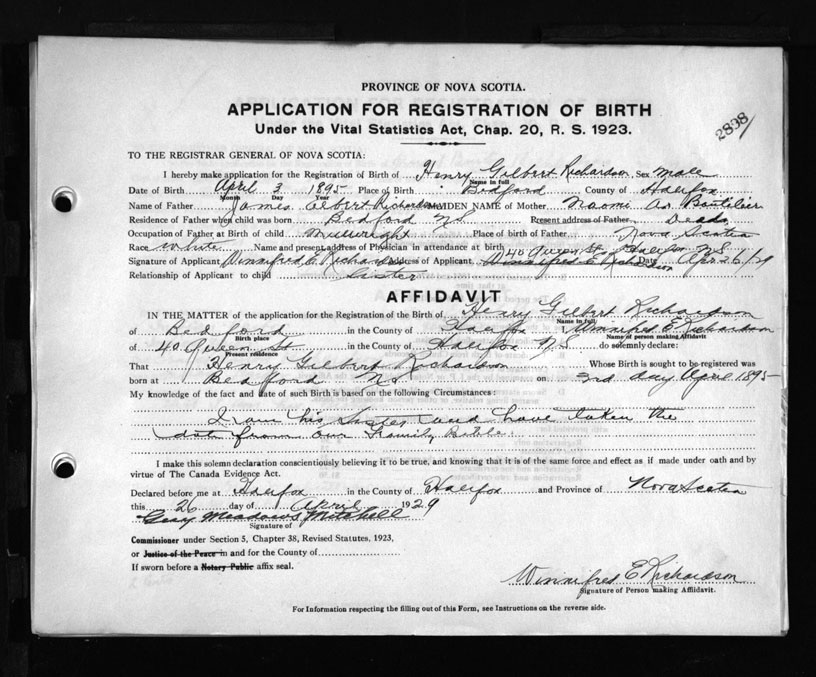 PROVINCE OF NOVA SCOTIA.
APPLICATION FOR REGISTRATION OF BIRTH
Under the Vital Statistics Act, Chap. 20, R. S. 1923.
2838
TO THE REGISTRAR GENERAL OF NOVA SCOTIA:
I hereby make application for the Registration of Birth of Henry Gilbert Richardson Sex male
Name in full
Date of Birth April 3 1895 Place of Birth Bedford County of Halifax
Month Day Year
Name of Father James Albert Richardson MAIDEN NAME of Mother Naomi Boutilier
Residence of Father when child was born Bedford N.S. Present address of Father Dead
Occupation of Father at Birth of child Millwright Place of birth of Father Nova Scotia
Race White Name and present address of Physician in attendance at birth 40 Queen St Halifax N.S.
Signature of Applicant Winnifred E Richardson Address of Applicant Winnifred E Richardson Date Apr 26/29
Relationship of Applicant to child Sister
AFFIDAVIT
IN THE MATTER of the application of the Registration of the Birth of Henry Gilbert Richardson
Name in full
of Bedford in the County of Halifax I, Winnifred E Richardson
Birth place Name of person making Affidavit
of 40 Queen St in the County of Halifax N.S do solemnly declare:
Present residence
That Henry Gilbert Richardson Whose Birth is sought to be registered was
born at Bedford N.S. on 3rd day April 1895
My knowledge of the fact and date of such Birth is based on the following Circumstances:
I am his Sister and have taken the
date from our Family Bible.
I make this solemn declaration conscientiously believing it to be true, and knowing that it is of the same force and effect as if made under oath and by
virtue of The Canada Evidence Act.
Declared before me at Halifax in the County of Halifax and Province of Nova Scotia
this 26 day of April 1929
Meadows Mitchell
Signature of
Commissioner under Section 5, Chapter 38, Revised Statutes, 1923,
or Justice of the Peace in and for the County of
If sworn before a Notary Public affix seal.
Winnifred E Richardson
Signature of Person making Affidavit.
For Information respecting the filling out of this Form, see Instructions on the reverse side.